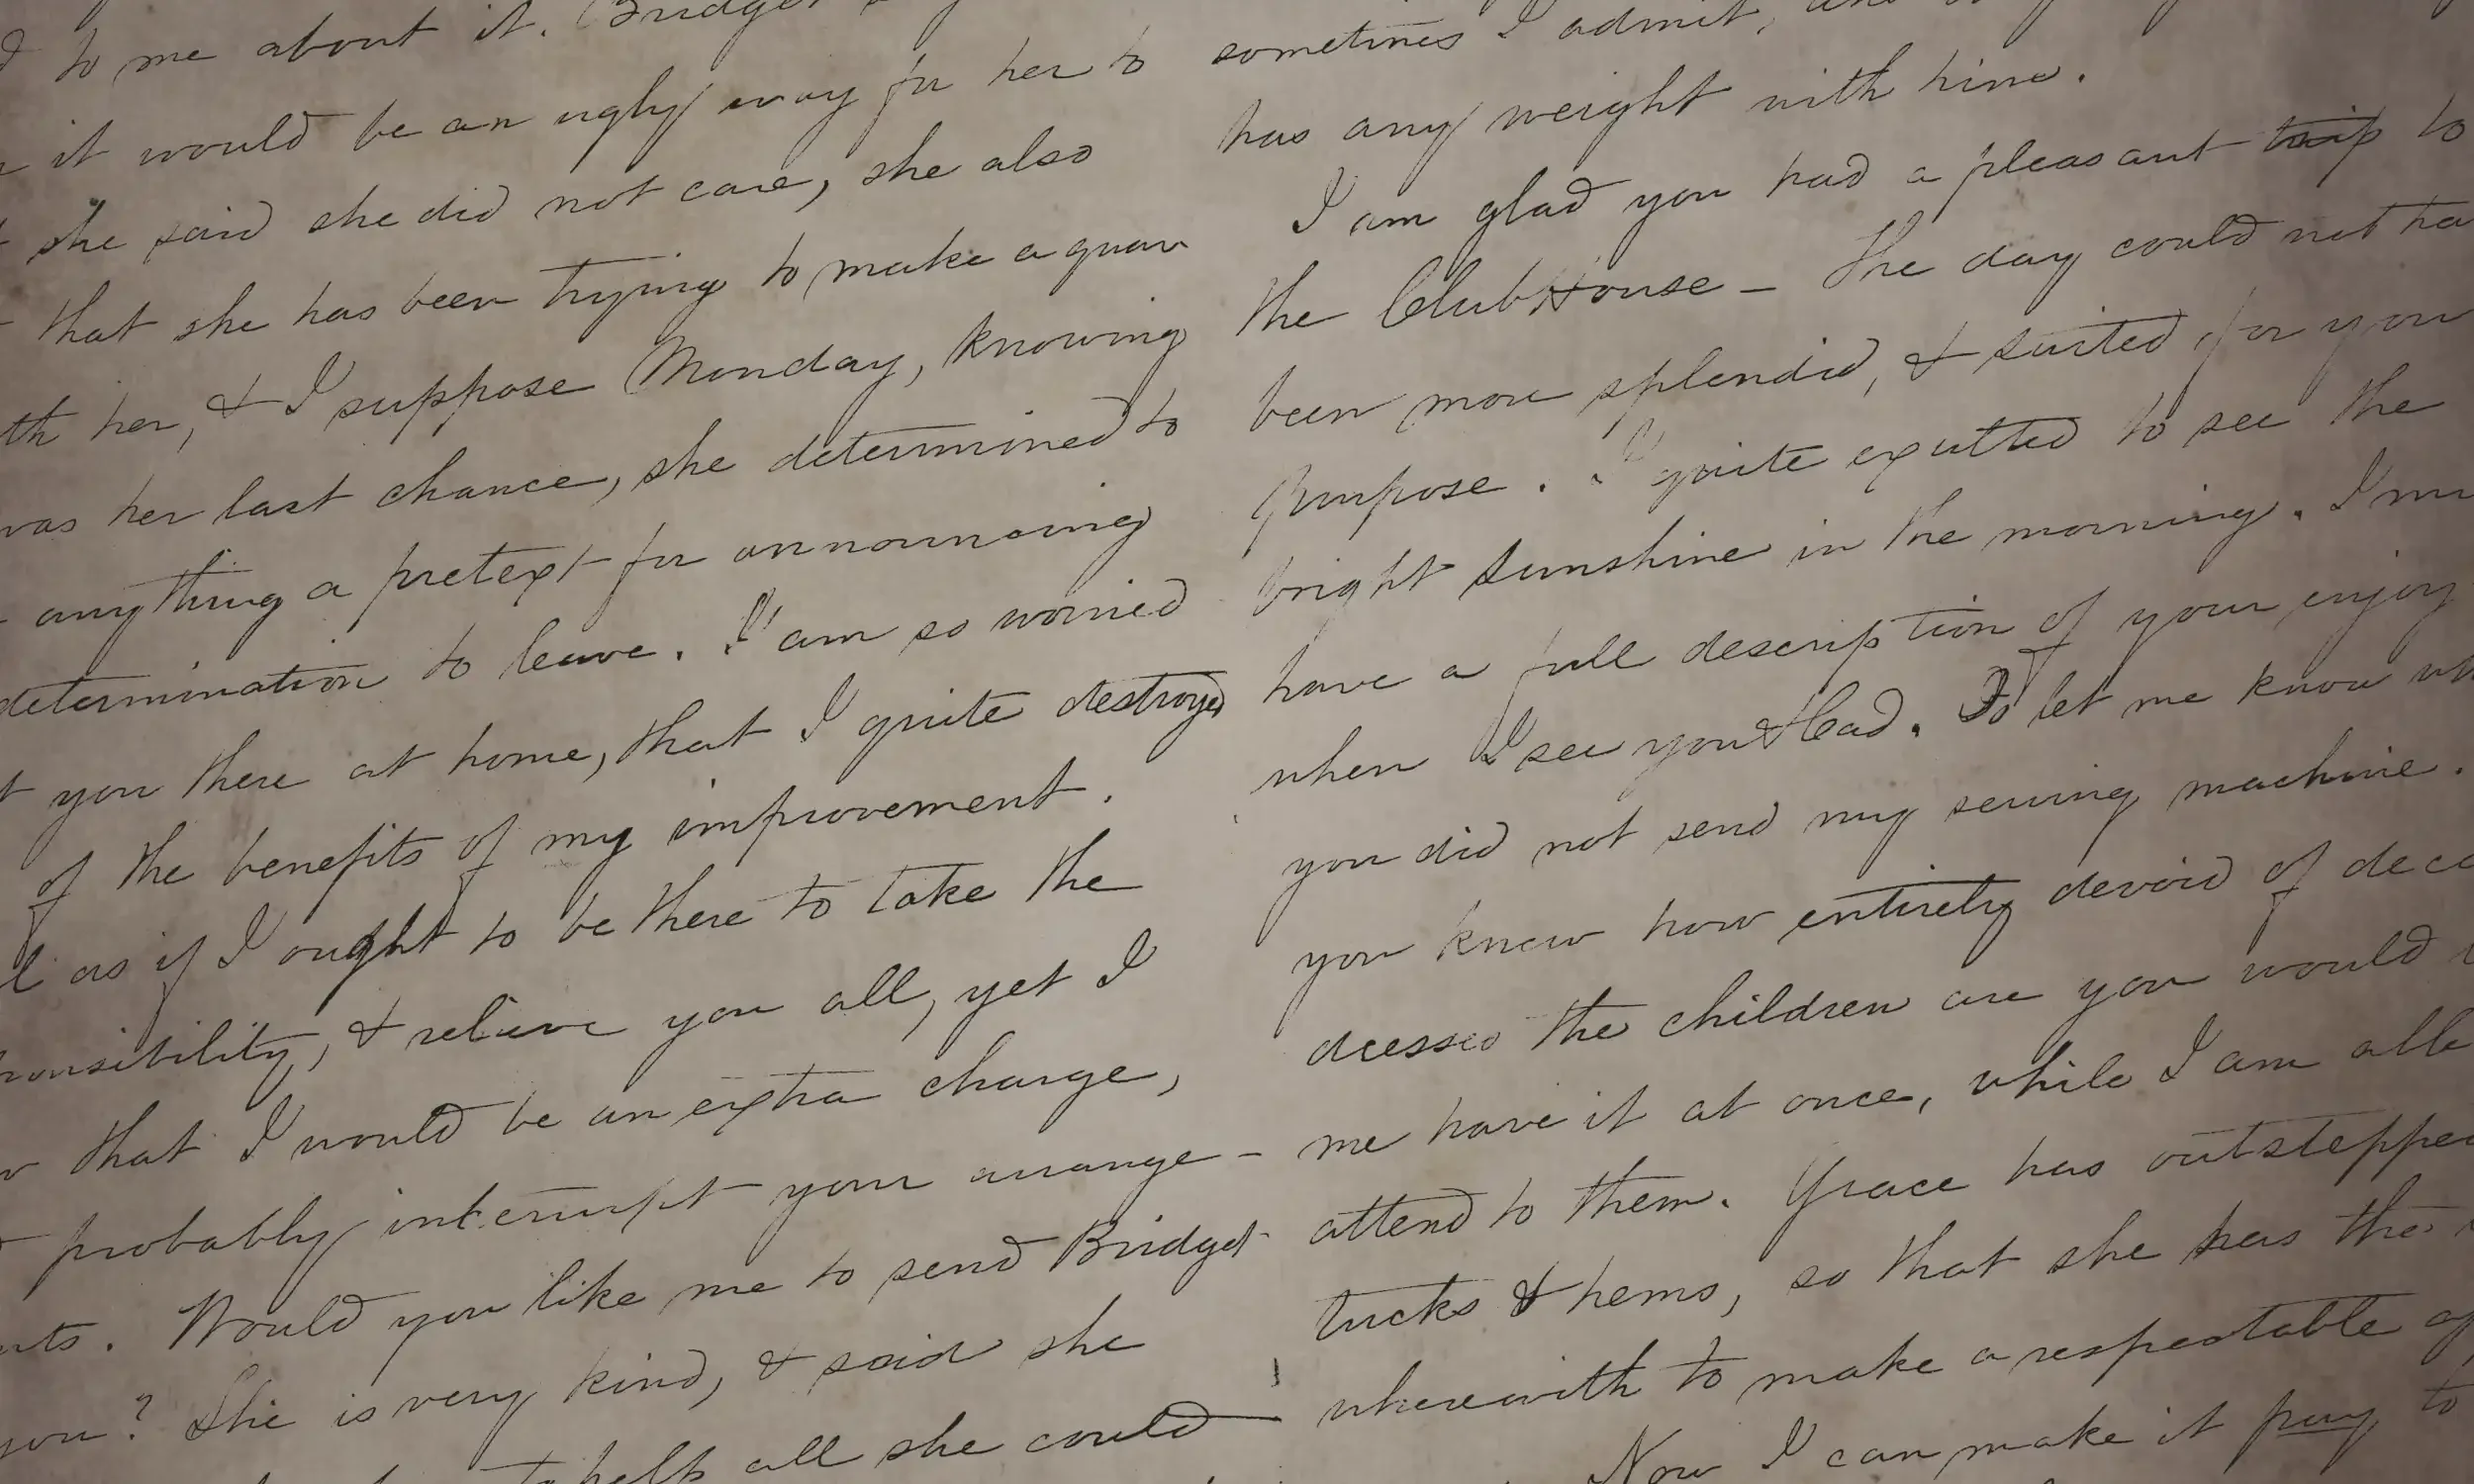 to me about it. Bridget
it would be an ugly way for her to
she said she did not care, she also
that she has been trying to make a quar
th her, & I suppose Monday, knowing
was her last chance, she determined to
anything a pretext for announcing
determination to leave. I am so worried
t you there at home, that I quite destroyed
of the benefits of my improvement.
l as if I ought to be there to take the
onsibility, & relieve you all, yet I
that I would be an extra charge,
probably interrupt your arrange-
nts. Would you like me to send Bridget
you? She is very kind, & said she
to help all she could
sometimes I admit,
has any weight with him.
I am glad you had a pleasant trip to
the Club House - The day could not ha
been more splendid, & suited for your
purpose. I quite exulted to see the
bright sunshine in the morning. I mu
have a full description of your enjoy
when I see you & Cad. Do let me know wh
you did not send my sewing machine.
you knew how entirely devoid of dece
dresses the children are you would
me have it at once, while I am able
attend to them. Grace has outstepped
tucks & hems, so that she has the
wherewith to make a respectable ap
Now I can make it pay to